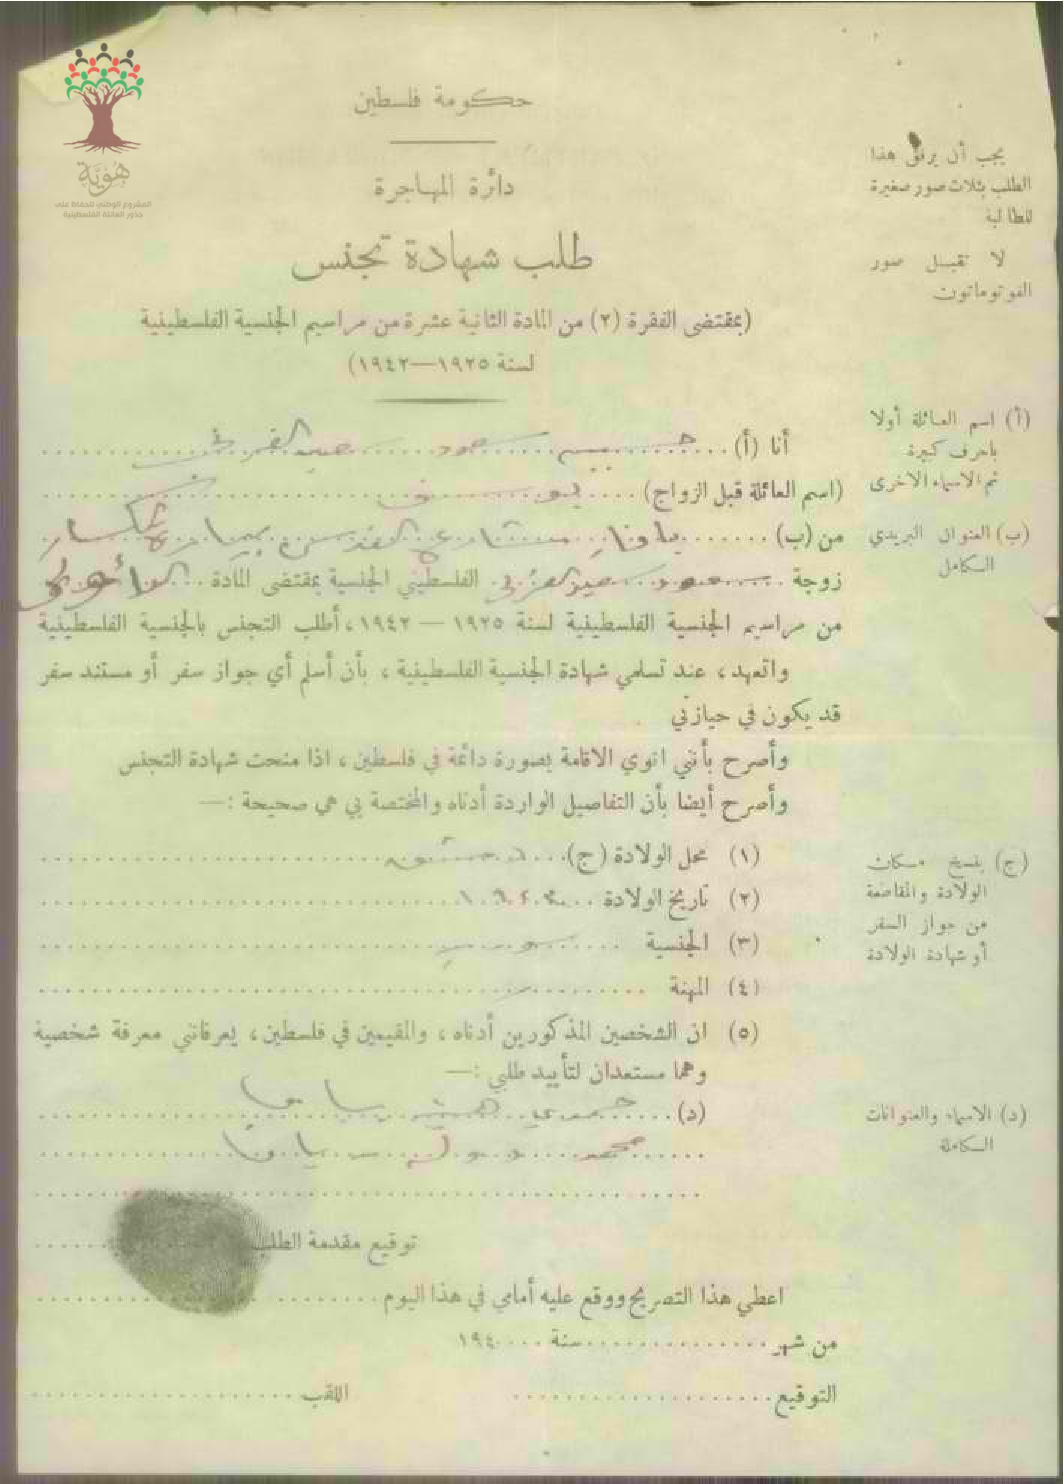 هُويَّة
المشروع الوطني للحفاظ على
جذور العائلة الفلسطينية
حكومة فلسطين
دائرة المهاجرة
طلب شهادة تجنس
(بمقتضى الفقرة (٢) من المادة الثانية عشرة من مراسيم الجنسية الفلسطينية
لسنة ١٩٢٥—١٩٤٢)
يجب أن يرفق هذا
الطلب بثلاث صور صغيرة
للطالبة
لا تقبل صور
الفوتوماتون
(أ) اسم العائلة أولا
باحرف كبيرة
ثم الاسماء الاخرى
(ب) العنوان البريدي
الكامل
أنا (أ)
(اسم العائلة قبل الزواج)
من (ب) يافا شارع القدس
زوجة الفلسطيني الجنسية بمقتضى المادة
من مراسيم الجنسية الفلسطينية لسنة ١٩٢٥ — ١٩٤٢، أطلب التجنس بالجنسية الفلسطينية
واتعهد، عند تسلمي شهادة الجنسية الفلسطينية، بأن أسلم أي جواز سفر أو مستند سفر
قد يكون في حيازتي
وأصرح بأنني انوي الاقامة بصورة دائمة في فلسطين، اذا منحت شهادة التجنس
وأصرح أيضا بأن التفاصيل الواردة أدناه والمختصة بي هي صحيحة :—
(١) محل الولادة (ج) دمشق
(٢) تاريخ الولادة
(٣) الجنسية
(٤) المهنة
(ج) ينسخ مكان
الولادة والمقاطعة
من جواز السفر
أو شهادة الولادة
(٥) ان الشخصين المذكورين أدناه، والمقيمين في فلسطين، يعرفانني معرفة شخصية
وهما مستعدان لتأييد طلبي :—
(د) يافا
محمد يافا
(د) الاسماء والعنوانات
الكاملة
توقيع مقدمة الطلب
اعطي هذا التصريح ووقع عليه أمامي في هذا اليوم
من شهر سنة ١٩٤
التوقيع اللقب